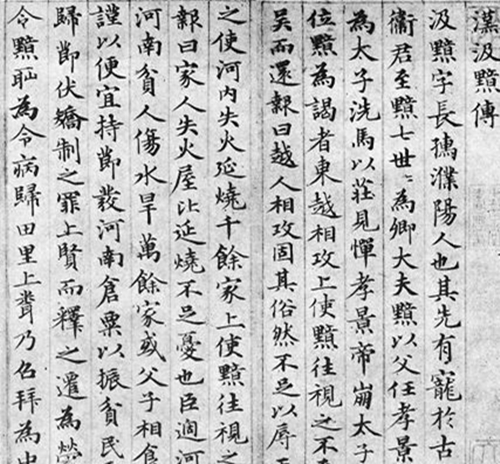 漢汲黯傳
汲黯字長孺濮陽人也其先有寵於古
衛君至黯七世〻為卿大夫黯以父任孝景
為太子洗馬以莊見憚孝景帝崩太子
位黯為謁者東越相攻上使黯往視之不
吴而還報曰越人相攻固其俗然不足以辱
之使河内失火延燒千餘家上使黯往視之
報曰家人失火屋比延燒不足憂也臣過河
河南貧人傷水旱萬餘家或父子相食
謹以便宜持節發河南倉粟以振貧民
歸節伏矯制之罪上賢而釋之遷為滎
令黯耻為令病歸田里上聞乃召拜為中